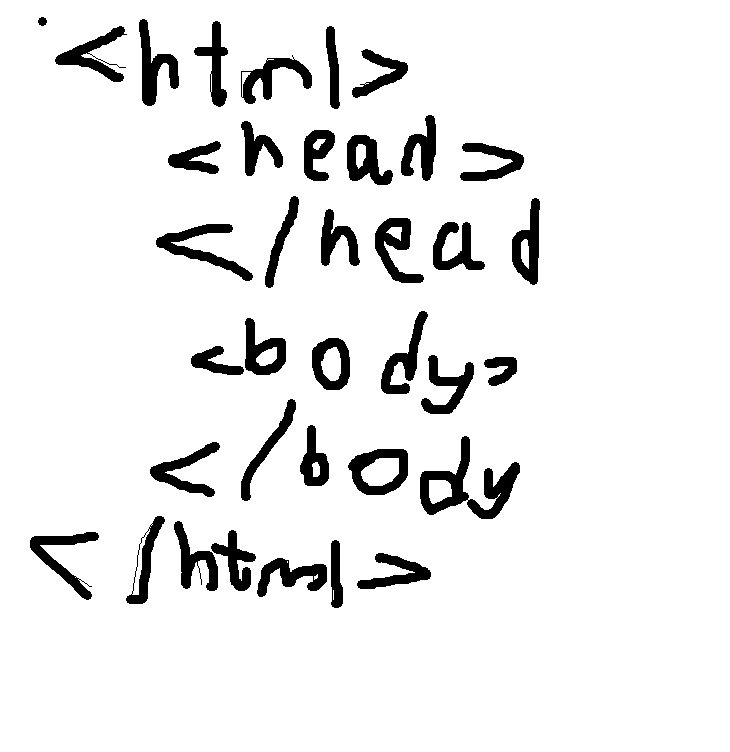 <html>
<head>
</head
<body>
</body
</html>